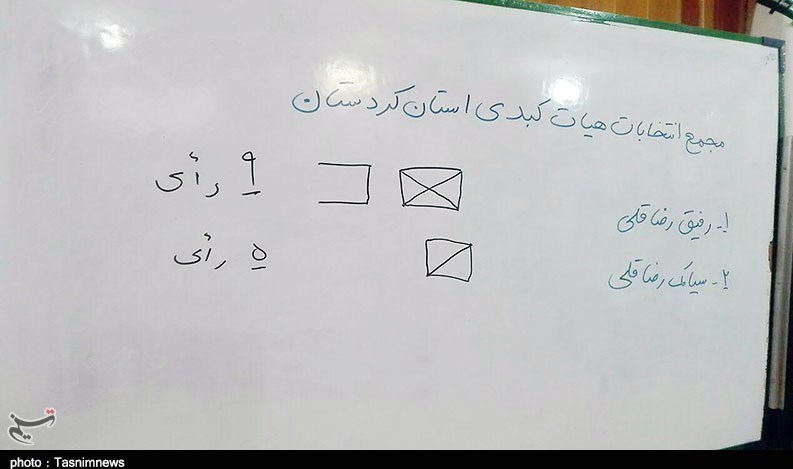 مجمع انتخابات هیات کبدی استان کردستان
۱- رفیق رضاقلی ۹ رأی
۲- سیامک رضاقلی ۵ رأی
تسنیم
photo : Tasnimnews